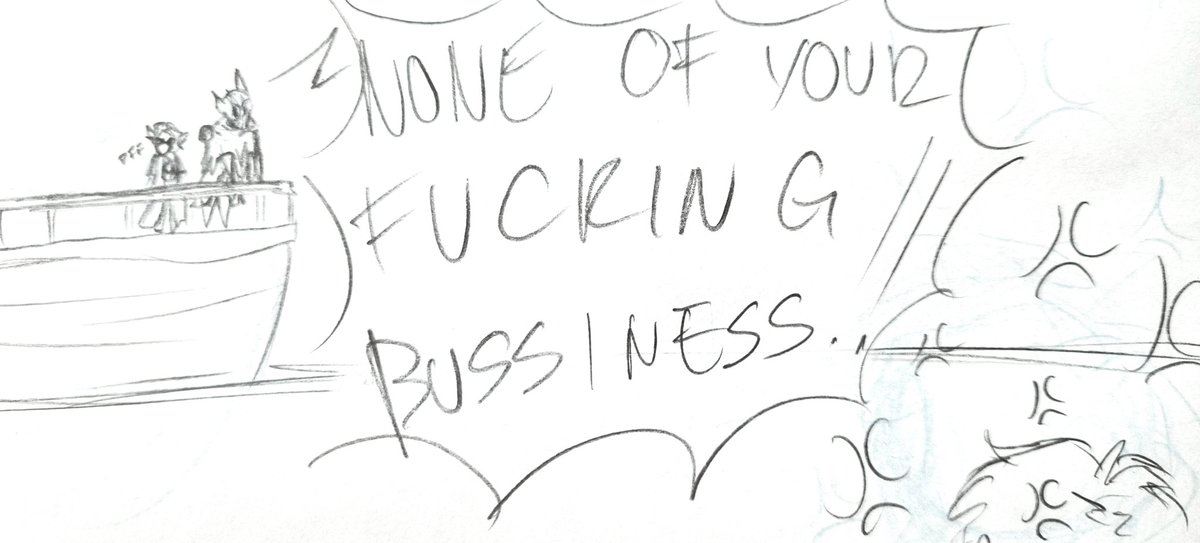 NONE OF YOUR
FUCKING
BUSSINESS..
PFF